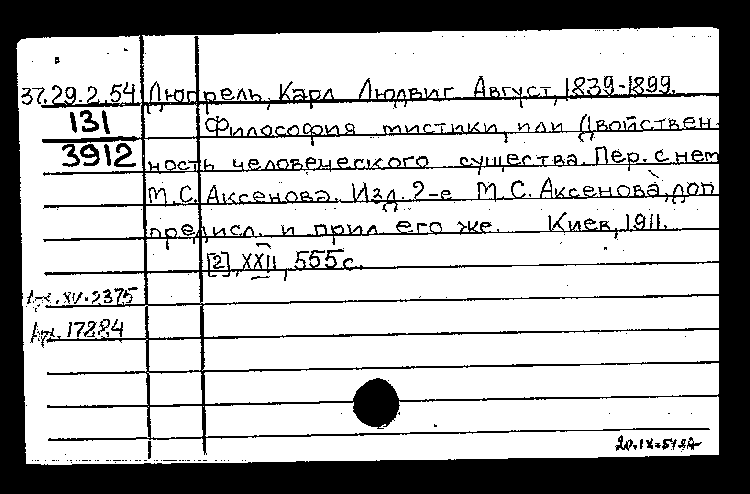 37.29.2.54 Дюпрель, Карл Людвиг Август, 1839-1899.
131 Философия мистики, или Двойствен-
3912 ность человеческого существа. Пер. с нем
М.С. Аксенова. Изд. 2-е М.С. Аксенова, доп
предисл. и прил. его же. Киев, 1911.
[2], XXII, 555 с.
Арх. XV-2375
Арх. 17884